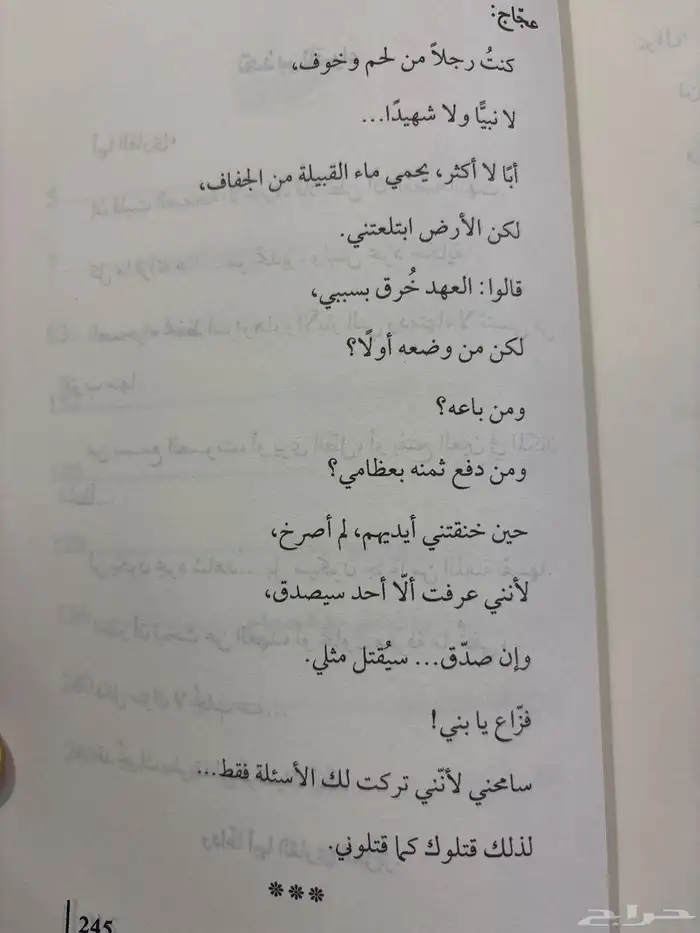 عجّاج:
كنتُ رجلاً من لحم وخوف،
لا نبيًّا ولا شهيدًا...
أبًا لا أكثر، يحمي ماء القبيلة من الجفاف،
لكن الأرض ابتلعتني.
قالوا: العهد خُرق بسببي،
لكن من وضعه أولًا؟
ومن باعه؟
ومن دفع ثمنه بعظامي؟
حين خنقتني أيديهم، لم أصرخ،
لأنني عرفت ألّا أحد سيصدق،
وإن صدّق... سيُقتل مثلي.
فزّاع يا بني!
سامحني لأنّني تركت لك الأسئلة فقط...
لذلك قتلوك كما قتلوني.
***
245
حراج